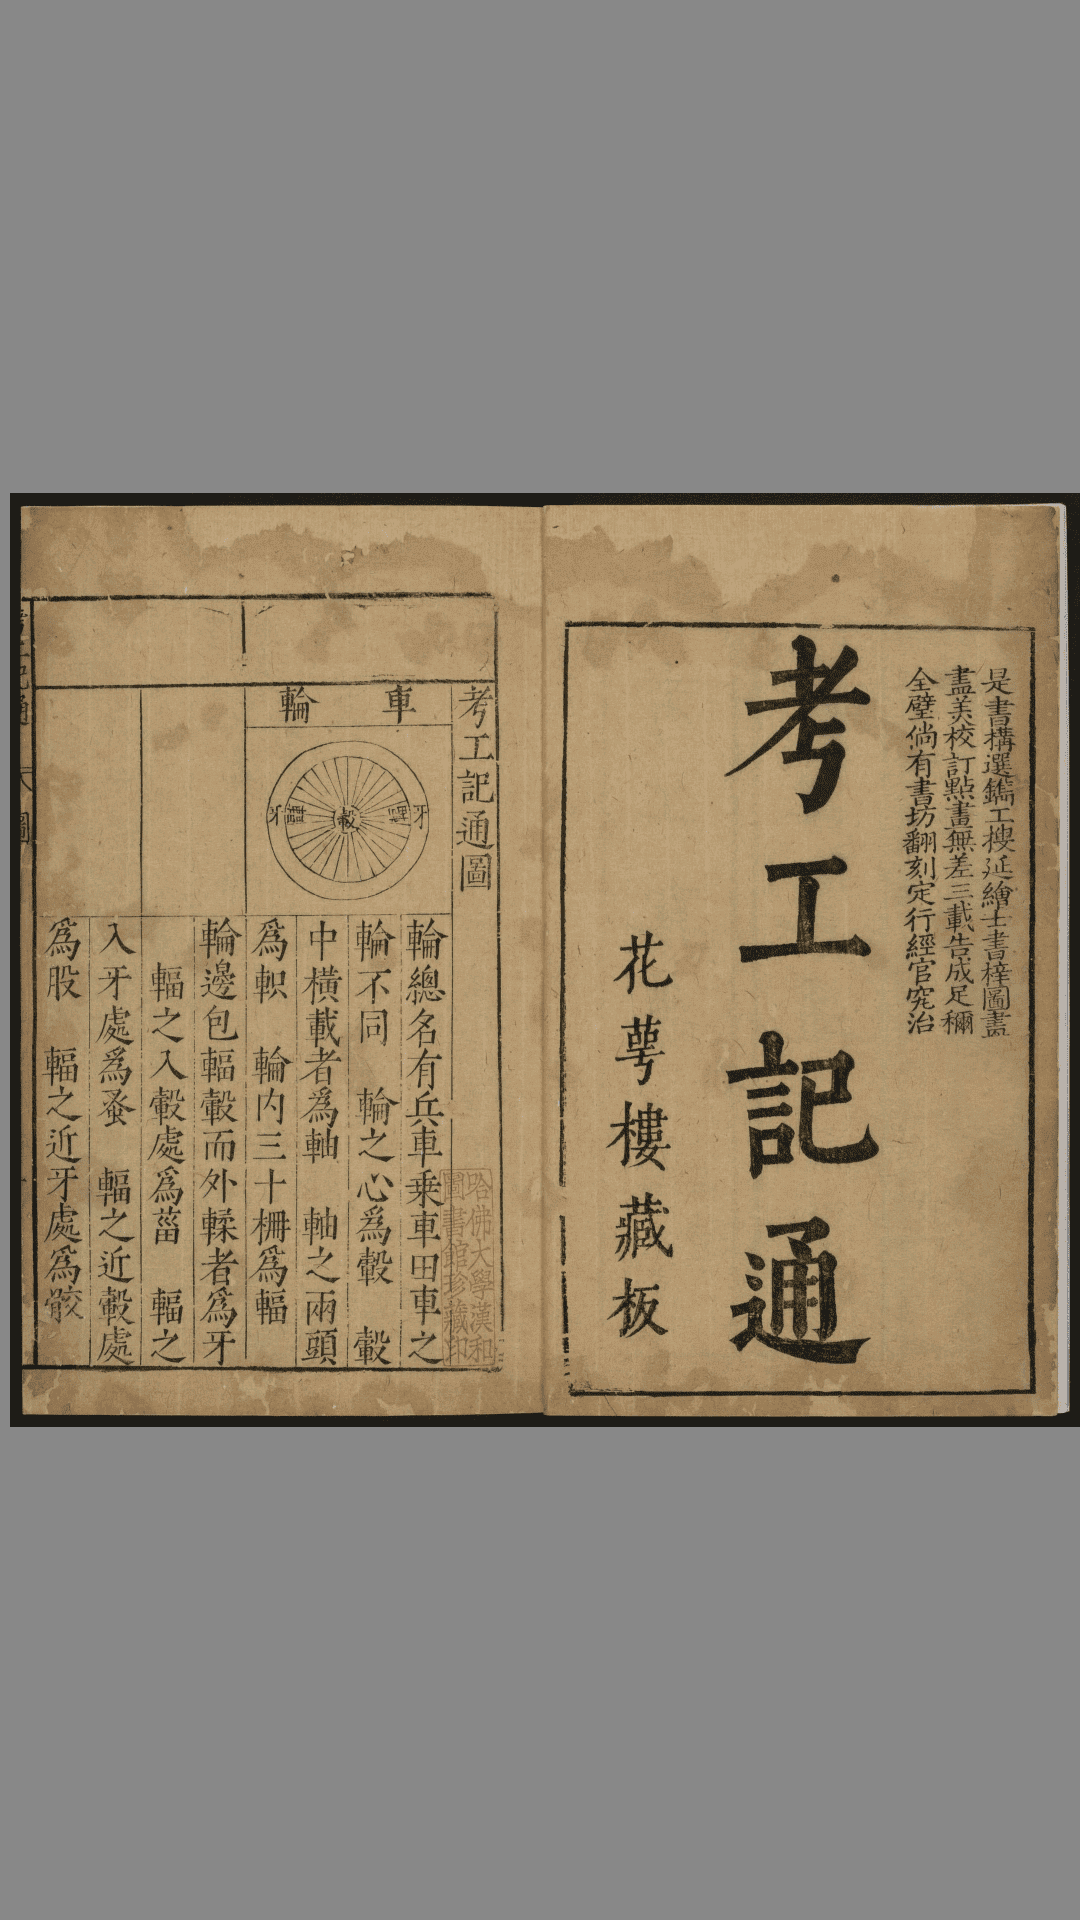 是書搆選鐫工搜延繪士書梓圖畫
盡美校訂點畫無差三載告成足稱
全璧倘有書坊翻刻定行經官究治
考工記通
花萼樓藏板
考工記通圖
車輪
牙
轂
牙
輪總名有兵車乗車田車之
輪不同 輪之心爲轂 轂
中橫載者爲軸 軸之兩頭
爲軹 輪内三十柵爲輻
輪邊包輻轂而外輮者爲牙
輻之入轂處爲菑 輻之
入牙處爲蚤 輻之近轂處
爲股 輻之近牙處爲骹
哈佛大學漢和
圖書館珍藏印